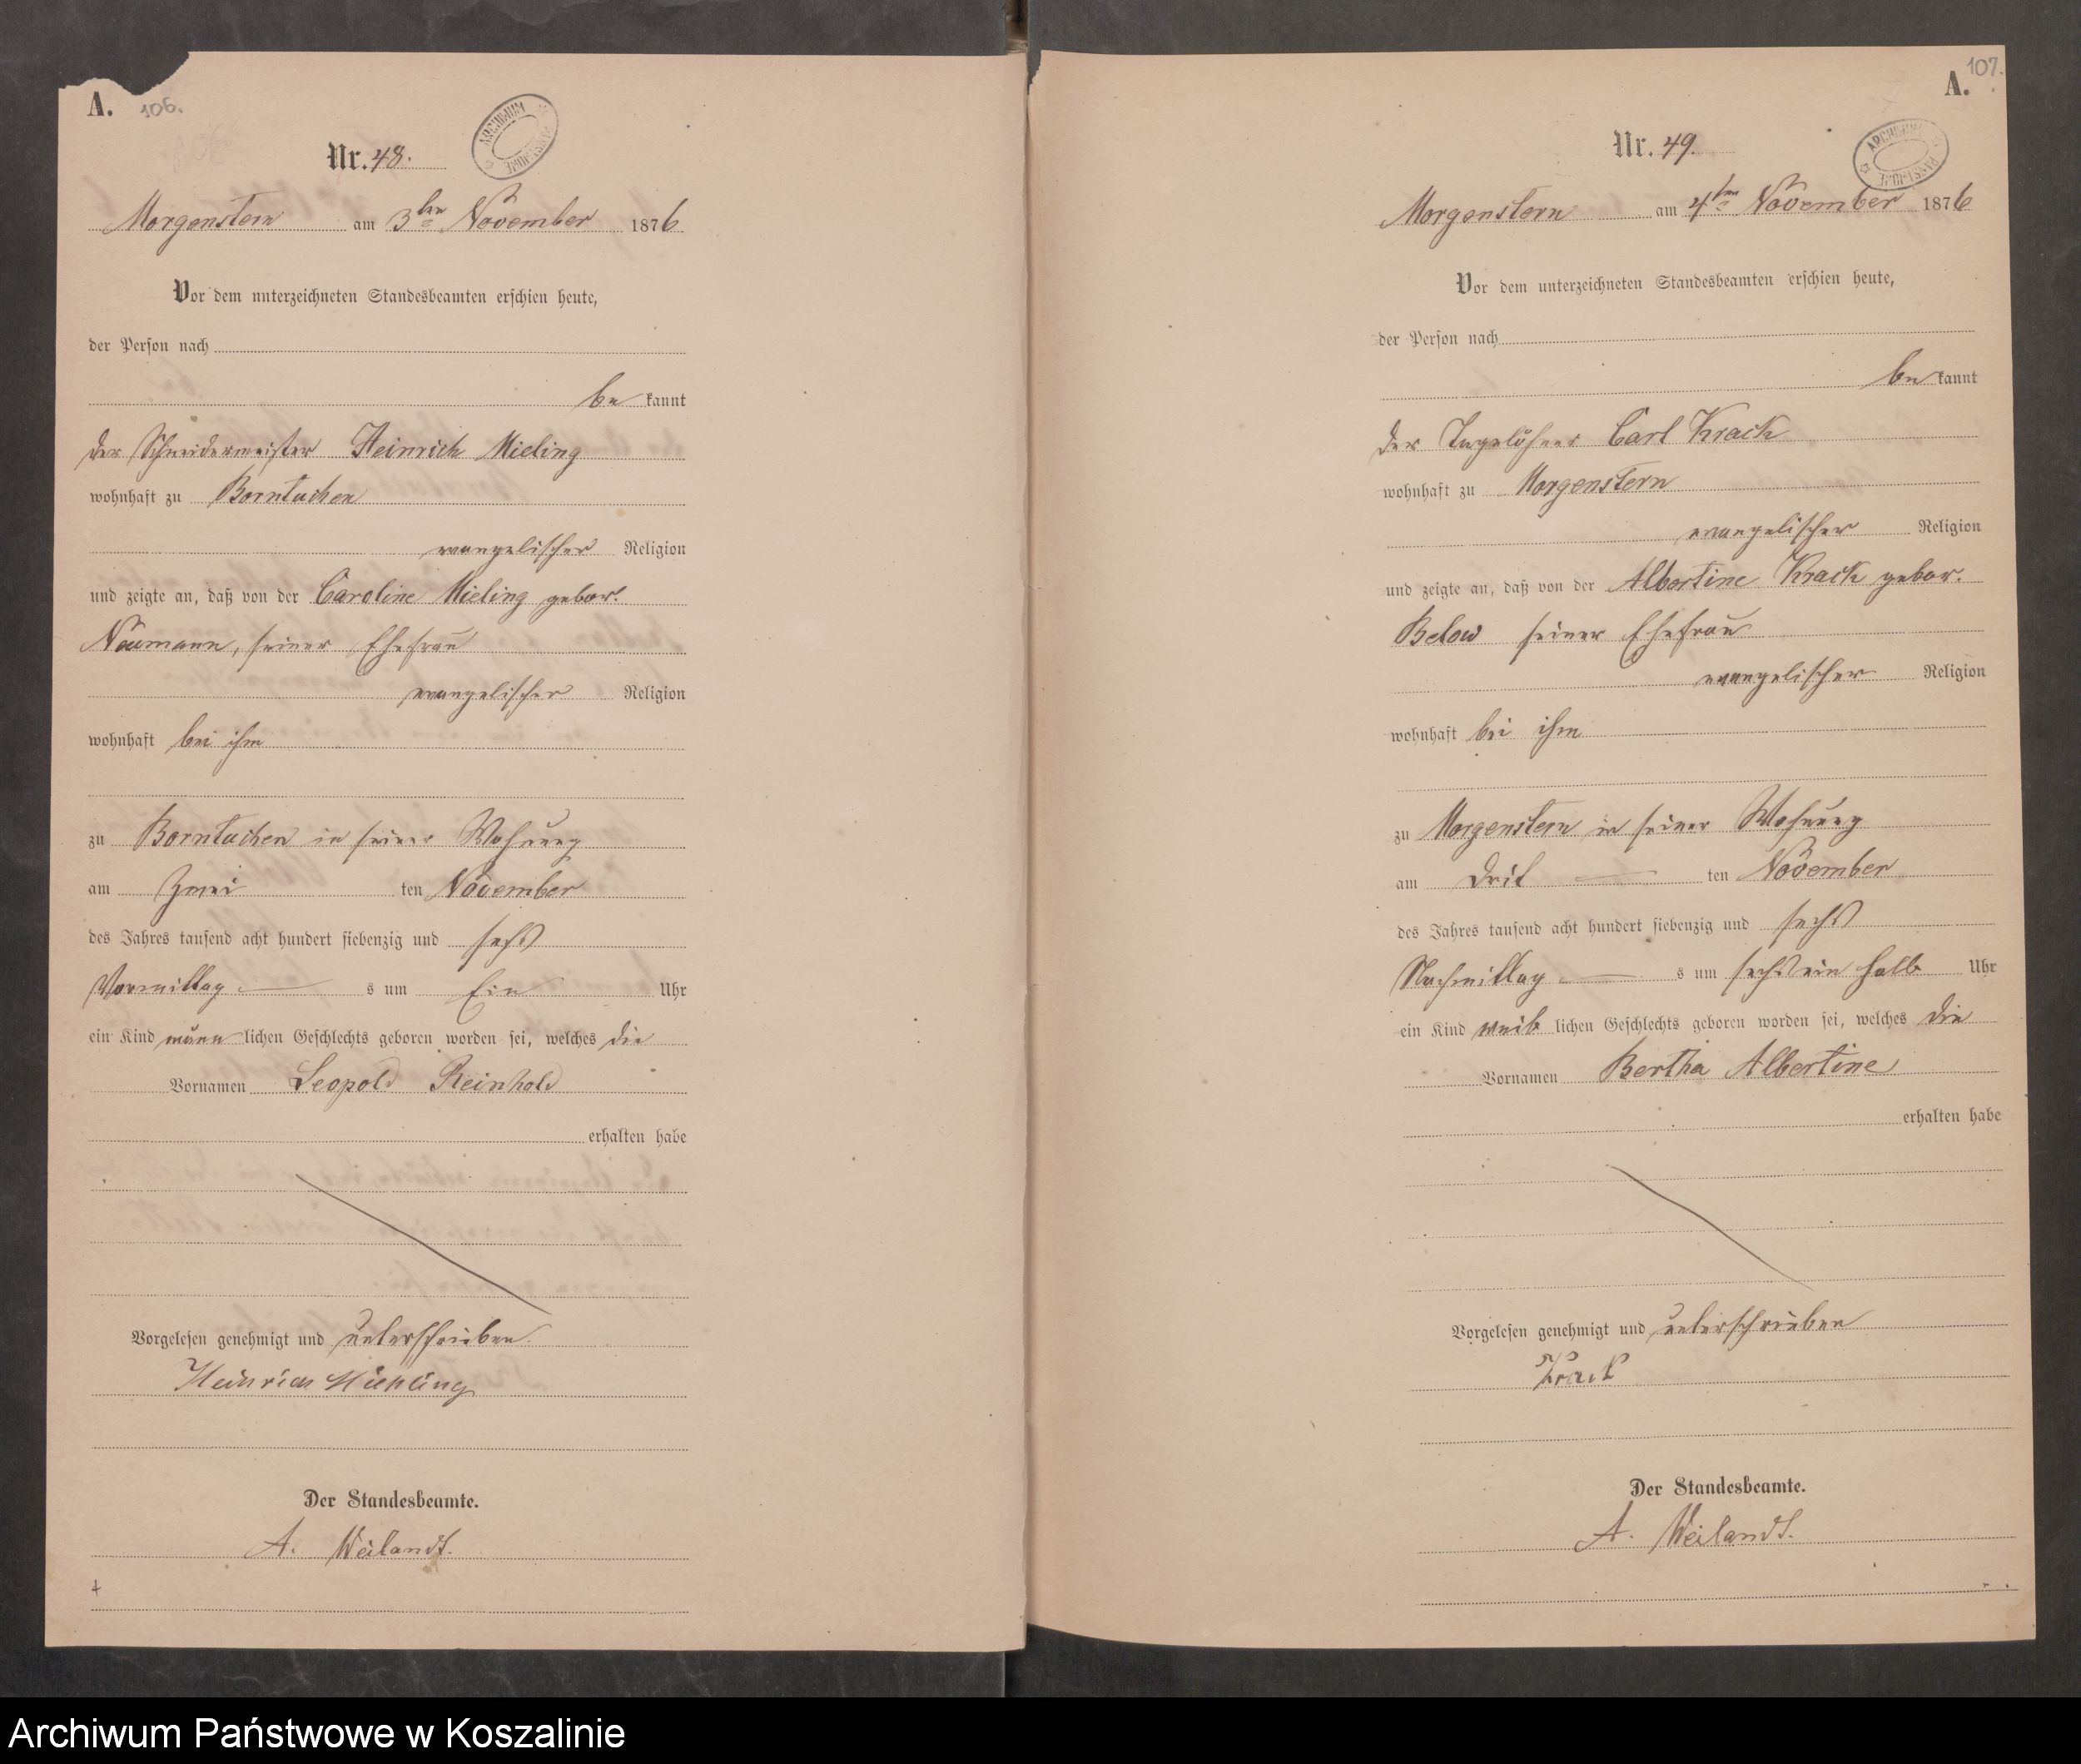 A. 106.
ARCHIWUM PAŃSTWOWE
Nr. 48.
Morgenstern am 3ten November 1876
Vor dem unterzeichneten Standesbeamten erschien heute,
der Person nach
be kannt
der Schneidermeister Heinrich Mieling
wohnhaft zu Borntuchen
evangelischer Religion
und zeigte an, daß von der Caroline Mieling gebor.
Naumann, seiner Ehefrau
evangelischer Religion
wohnhaft bei ihm
zu Borntuchen in seiner Wohnung
am Zwei ten November
des Jahres tausend acht hundert siebenzig und sechs
Vormittag s um Ein Uhr
ein Kind männ lichen Geschlechts geboren worden sei, welches die
Vornamen Leopold Reinhold
erhalten habe
Vorgelesen genehmigt und unterschrieben.
Heinrich Miehling
Der Standesbeamte.
A. Weilandt.
A. 107.
ARCHIWUM PAŃSTWOWE
Nr. 49.
Morgenstern am 4ten November 1876
Vor dem unterzeichneten Standesbeamten erschien heute,
der Person nach
be kannt
der Tagelöhner Carl Krack
wohnhaft zu Morgenstern
evangelischer Religion
und zeigte an, daß von der Albertine Krack gebor.
Below seiner Ehefrau
evangelischer Religion
wohnhaft bei ihm
zu Morgenstern in seiner Wohnung
am Drit ten November
des Jahres tausend acht hundert siebenzig und sechs
Nachmittag s um sechs ein halb Uhr
ein Kind weib lichen Geschlechts geboren worden sei, welches die
Vornamen Bertha Albertine
erhalten habe
Vorgelesen genehmigt und unterschrieben
Krack
Der Standesbeamte.
A. Weilandt.
Archiwum Państwowe w Koszalinie